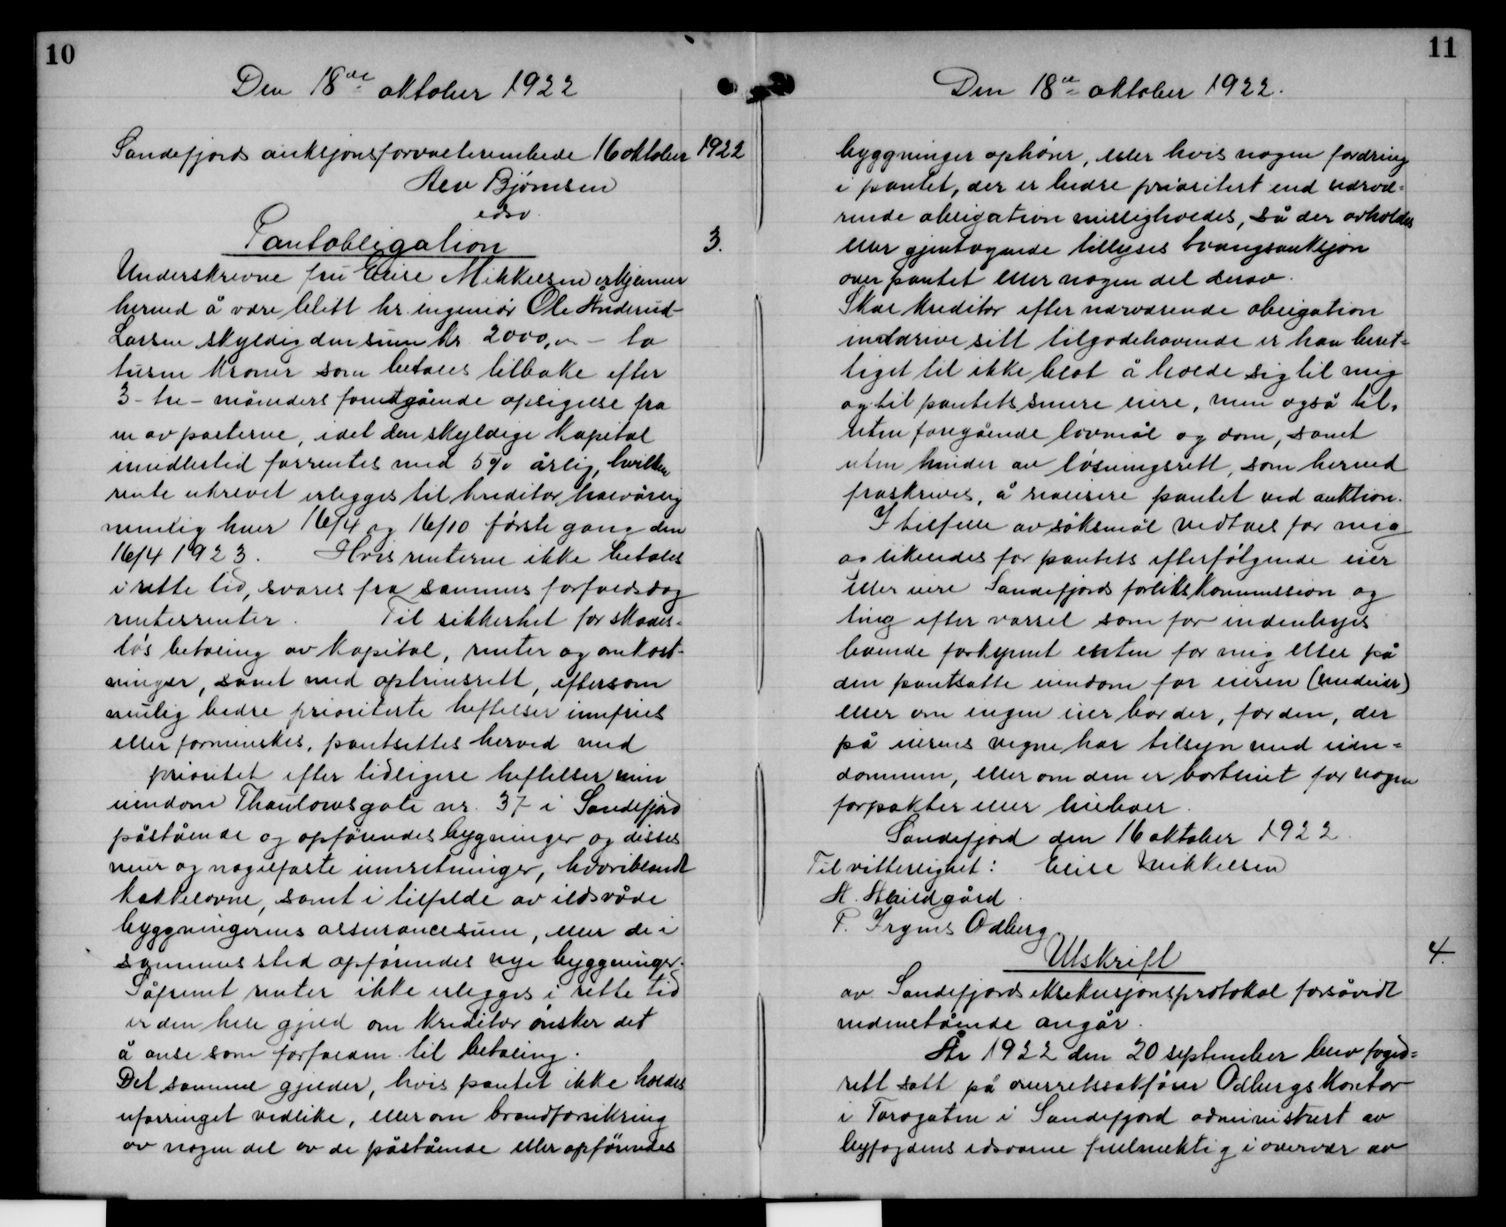 10
Den 18de oktober 1922
Sandefjords auksjonsforvalterembede 16 oktober 1922
Alv Bjørnsen
edsv.
Pantobligation
3.
Underskrevne fru Elise Mikkelsen erkjenner
herved å være blitt hr. ingeniør Ole Anderud-
Larsen skyldig den sum kr. 2000,00 - to
tusen kroner som betales tilbake efter
3 - tre - måneders forutgående opsigelse fra
en av parterne, idet den skyldige kapital
imidlertid forrentes med 5% årlig, hvilken
rente ukrevet erlegges til kreditor halvårlig
nemlig hver 16/4 og 16/10 første gang den
16/4 1923. Hvis renterne ikke betales
i rette tid, svares fra sammes forfaldsdag
rentesrenter. Til sikkerhet for skades-
løs betaling av kapital, renter og omkost-
ninger, samt med optrinsrett, eftersom
mulig bedre prioriterte heftelser innfries
eller forminskes, pantsettes herved med
prioritet efter tidligere heftelser min
eiendom Thaulowsgate nr. 37 i Sandefjord
påstående og opførendes bygninger og disses
mur og nagelfaste innretninger, hvoriblandt
kakkelovne, samt i tilfelde av ildsvåde
byggningernes assurancesum, eller de i
sammes sted opførendes nye byggninger.
Såfremt renter ikke erlegges i rette tid
er den hele gjæld om kreditor ønsker det
å anse som forfalden til betaling.
Det samme gjelder, hvis pantet ikke holdes
uforringet vedlike, eller om brandforsikring
av nogen del av de påstående eller opførendes
11
Den 18de oktober 1922.
byggninger ophører, eller hvis nogen fordring
i pantet, der er bedre prioritert end nærvæ-
rende obligation misligholdes, så der avholdes
eller gjentagende tillyses tvangsauksjon
over pantet eller nogen del derav.
Skal kreditor efter nærværende obligation
inddrive sitt tilgodehavende er han beret-
tiget til ikke blot å holde sig til mig
og til pantets senere eiere, men også til,
uten foregående lovmål og dom, samt
uten hinder av løsningsrett, som herved
fraskrives, å realisere pantet ved auktion.
I tilfelle av søksmål vedtaes for mig
og likeledes for pantets efterfølgende eier
eller eiere Sandefjords forlikskommission og
ting efter varsel som for indenbys
boende forkynnt enten for mig eller på
den pantsatte eiendom for eieren (medeier)
eller om ingen eier bor der, for den, der
på eierens vegne har tilsyn med eien-
dommen, eller om den er bortleiet for nogen
forpakter eller leieboer.
Sandefjord den 16 oktober 1922.
Til vitterlighet: Elise Mikkelsen
A. Abildgård.
P. Fryms Odberg
Utskrift
4.
av Sandefjords eksekusjonsprotokol forsåvidt
nedenstående angår.
År 1922 den 20 september blev foged-
rett satt på overrettssakfører Odbergs kontor
i Torvgaten i Sandefjord administrert av
byfogdens edsvorne fuldmektig i overvær av